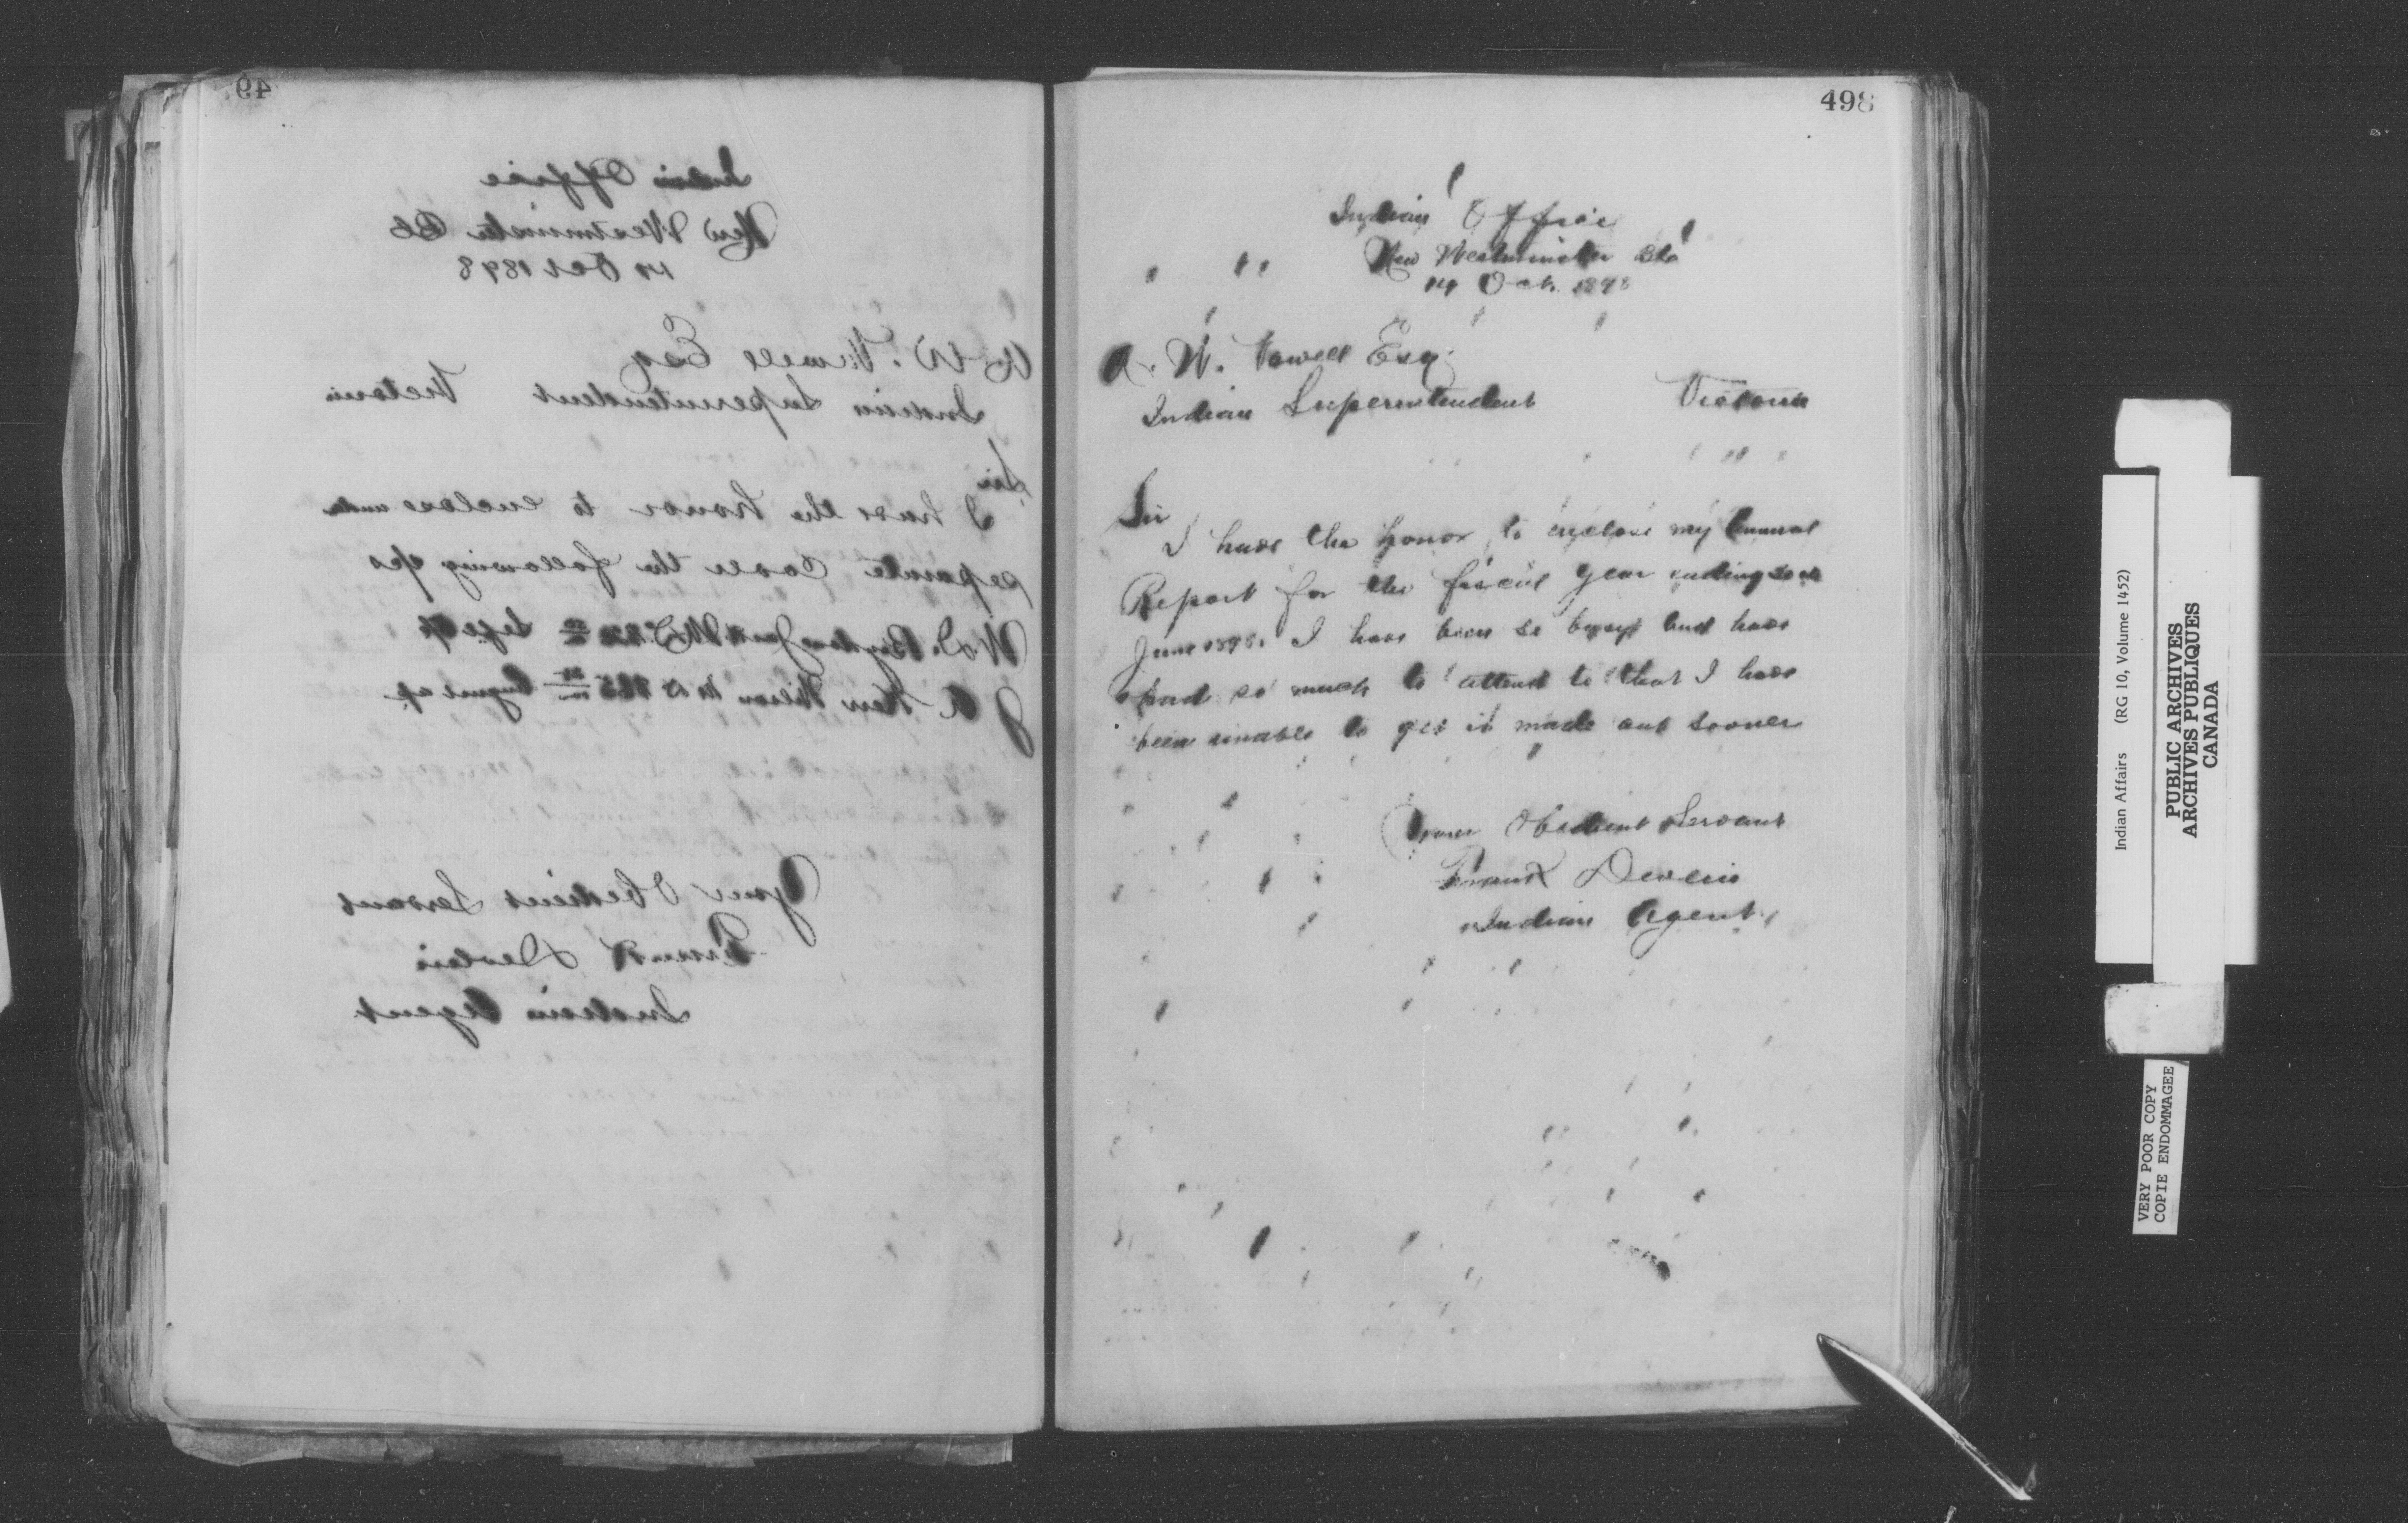 49
Indian Office
New Westminster BC
14 Oct 1898
A. W. Vowell Esq
Indian Superintendent Victoria
Sir
I have the honor to enclose under
separate cover the following
Your Obedient Servant
Frank Devlin
Indian Agent
498
Indian Office
New Westminster BC
14 Oct. 1898
A. W. Vowell Esq.
Indian Superintendent Victoria
Sir
I have the honor to enclose my Annual
Report for the fiscal year ending 30th
June 1898. I have been so busy and have
had so much to attend to that I have
been unable to get it made out sooner
Your Obedient Servant
Frank Devlin
Indian Agent
Indian Affairs (RG 10, Volume 1452)
PUBLIC ARCHIVES
ARCHIVES PUBLIQUES
CANADA
VERY POOR COPY
COPIE ENDOMMAGEE